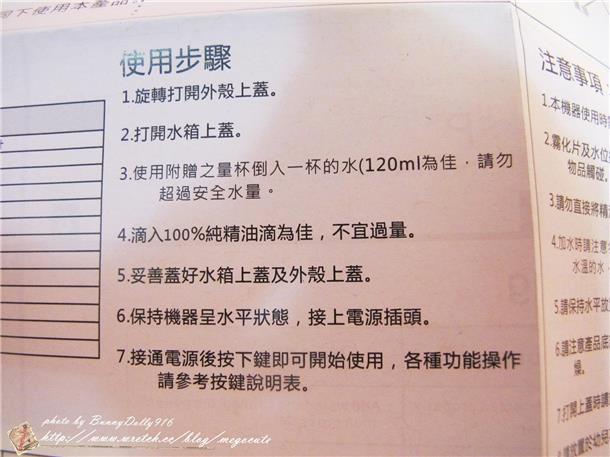 下使用本產品
使用步驟
1.旋轉打開外殼上蓋。
2.打開水箱上蓋。
3.使用附贈之量杯倒入一杯的水(120ml為佳，請勿
超過安全水量。
4.滴入100%純精油滴為佳，不宜過量。
5.妥善蓋好水箱上蓋及外殼上蓋。
6.保持機器呈水平狀態，接上電源插頭。
7.接通電源後按下鍵即可開始使用，各種功能操作
請參考按鍵說明表。
注意事項
1.本機器使用時
2.霧化片及水位
物品觸碰。
3.請勿直接將精
4.加水時請注意
水溫的水
5.請保持水平放
6.請注意產品底
燥。
7.打開上蓋時請
請放置於幼兒
photo by BunnyDolly916
http://www.wretch.cc/blog/megacute